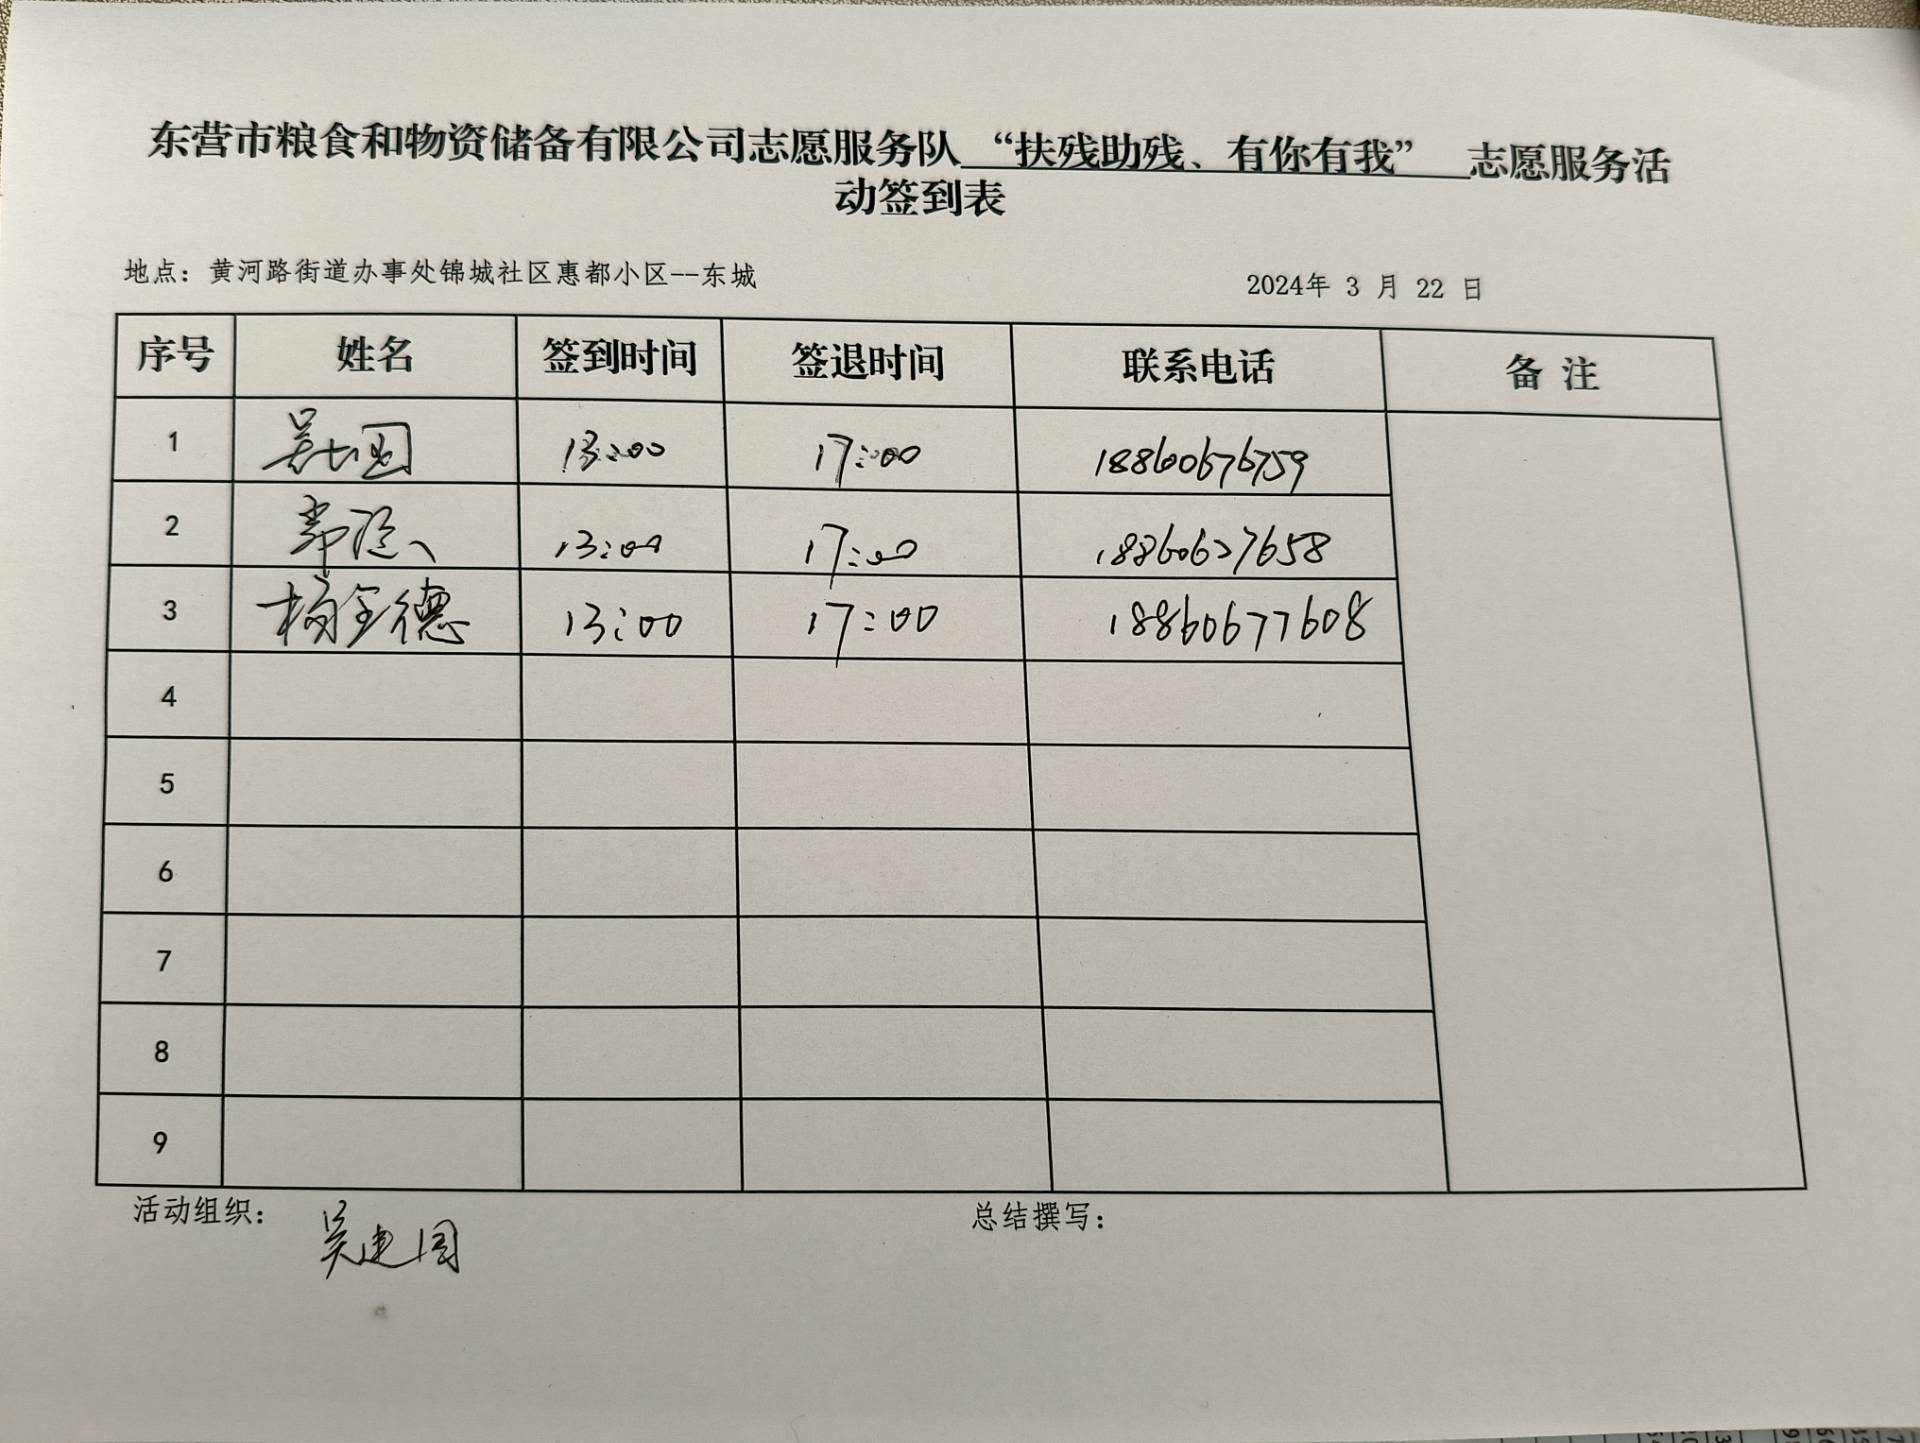 东营市粮食和物资储备有限公司志愿服务队 “扶残助残、有你有我” 志愿服务活
动签到表
地点：黄河路街道办事处锦城社区惠都小区--东城 2024年 3 月 22 日
序号 姓名 签到时间 签退时间 联系电话 备 注
1 13:00 17:00 18860676759
2 13:00 17:00 18860627658
3 杨金德 13:00 17:00 18860677608
4
5
6
7
8
9
活动组织： 总结撰写：
吴建国